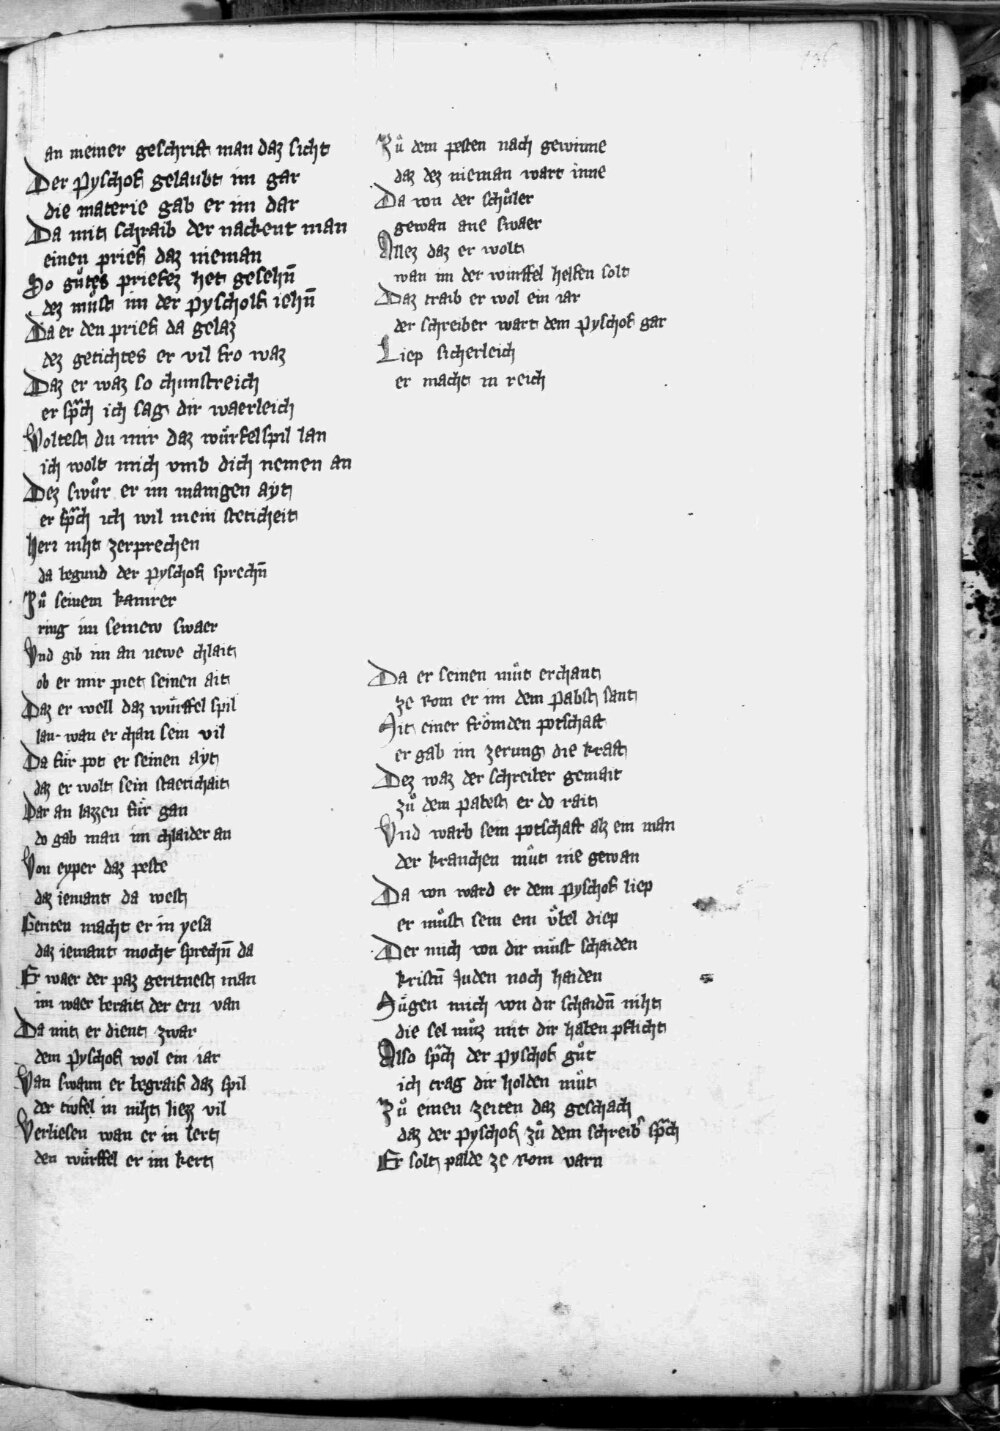 an meiner geschrift man daz sicht
Der pyschof gelaubt im gar
die materie gab er im dar
Da mit schraib der nackent man
einen prief daz nieman
So gůtes priefez het gesehn̄
dez můst im der pyscholf iehn̄
Da er den prief da gelaz
dez getichtes er vil fro waz
Daz er waz so chunstreich
er sp̃ch ich sag dir waerleich
Woltest du mir daz wu̍rfelspil lan
ich wolt mich vmb dich nemen an
Dez swůr er im manigen ayt
er sp̃ch ich wil mein steticheit
Herr niht zerprechen
da begund der pyschof sprechn̄
Zů seinem kamrer
ring im seinew swaer
Vnd gib im an newe chlait
ob er mir piet seinen ait
Daz er well daz wu̍rffel spil
lan wan er chan sein vil
Da fu̍r pot er seinen ayt
daz er wolt sein staetichait
Dar an lazzen fu̍r gan
do gab man im chlaider an
Von eyper daz peste
daz iemant da west
Geriten macht er in yesa
daz iemant mocht sprechn̄ da
Er waer der paz geritnest man
im waer berait der ern van
Da mit er dient zwar
dem pyschof wol ein iar
Wan swann er begraif daz spil
der tiefel in niht liezz vil
Verliesen wan er in lert
den wu̍rffel er im kert
Zů dem pesten nach gewinne
daz dez nieman wart inne
Da von der schůler
gewan ane swaer
Allez daz er wolt
wan im der wurffel helfen solt
Daz traib er wol ein iar
der schreiber wart dem pyschof gar
Liep sicherleich
er macht in reich
Da er seinen můt erchant
ze rom er im dem pabst sant
Mit einer fro̍mden potschaft
er gab im zerung die kraft
Dez waz der schreiber gemait
zů dem pabest er do rait
Vnd warb sein potschaft alz ein man
der kranchen můt nie gewan
Da von ward er dem pyschof liep
er můst sein ein u̍bel diep
Der mich von dir můst schaiden
kristn̄ Juden noch haiden
Mu̍gen mich von dir schaidn̄ niht
die sel můz mit dir haben pflicht
Also sp̃ch der pyschof gůt
ich trag dir holden můt
Zů einen zeiten daz geschach
daz der pyschof zů dem schreib̾ sp̃ch
Er solt palde ze rom varn